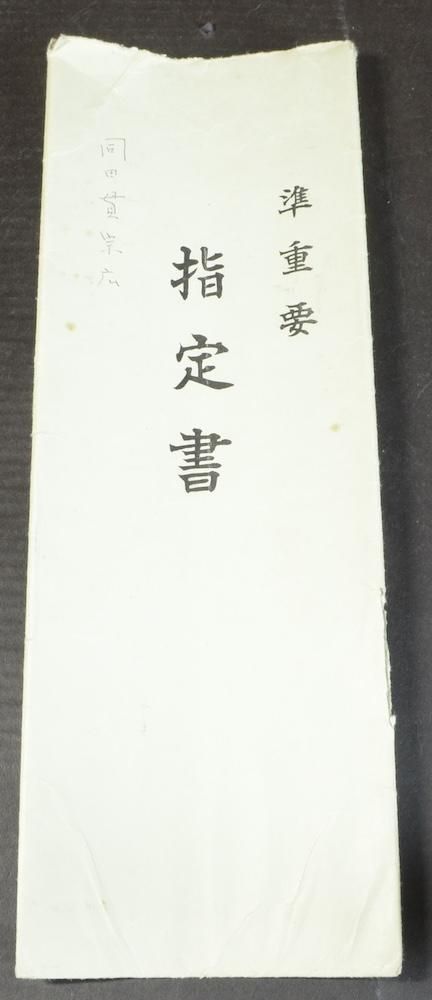 準重要
指定書
同田貫宗広